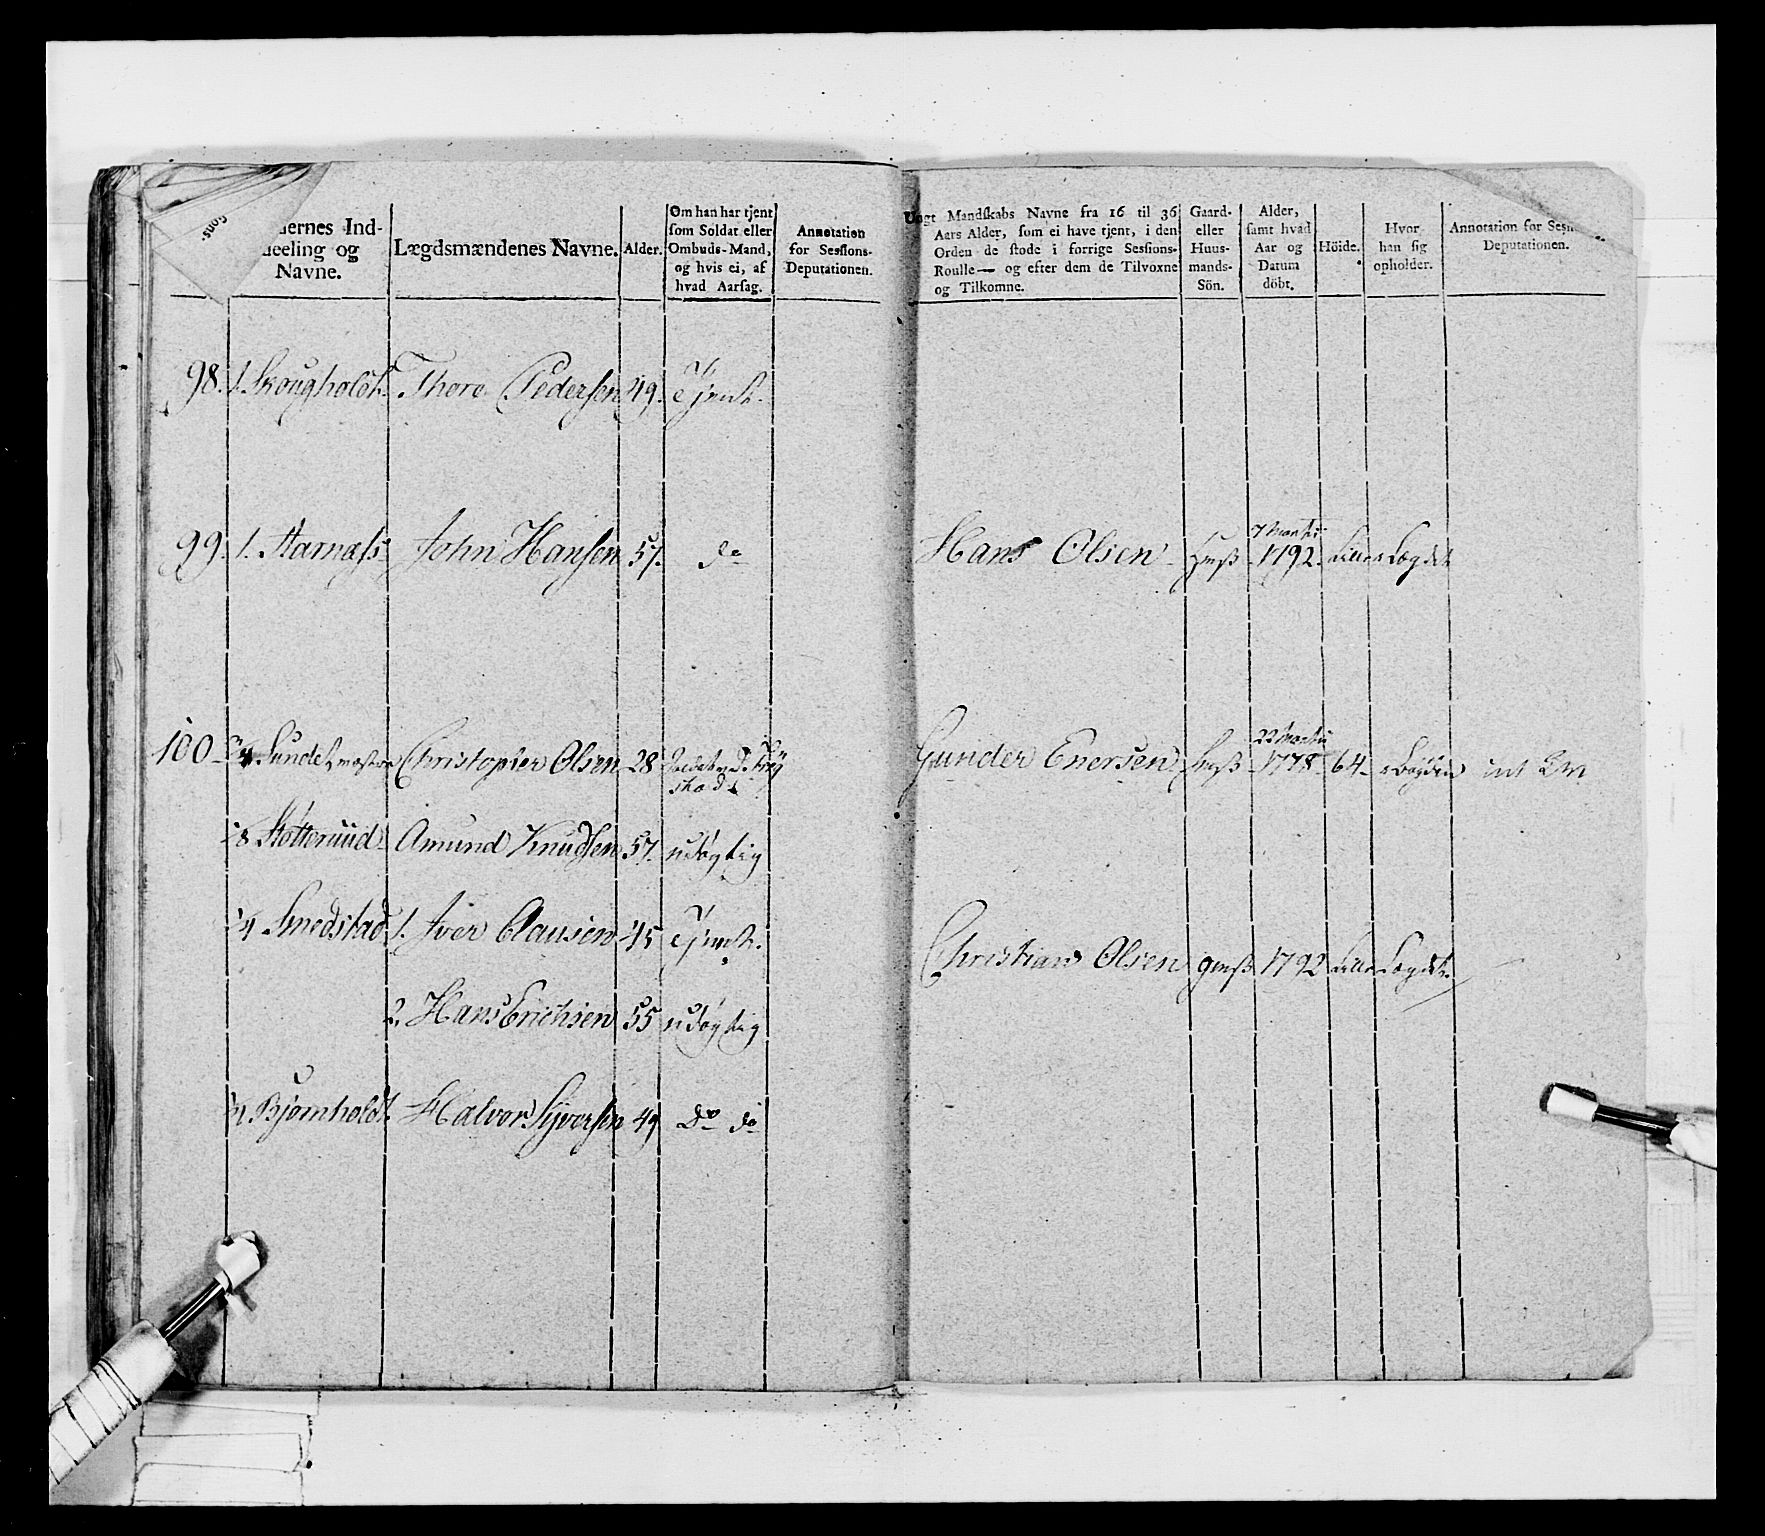 Gons-
ernes Ind-
deeling og
Navne.
Lægdsmændenes Navne.
Alder.
Om han har tjent
som Soldat eller
Ombuds-Mand,
og hvis ei, af
hvad Aarsag.
Annotation
for Sessions-
Deputationen.
Ungt Mandskabs Navne fra 16 til 36
Aars Alder, som ei have tjent, i den
Orden de stode i forrige Sessions-
Roulle — og efter dem de Tilvoxne
og Tilkomne.
Gaard-
eller
Huus-
mands-
Sön.
Alder,
samt hvad
Aar og
Datum
döbt.
Höide.
Hvor
han sig
opholder.
Annotation for Ses
Deputationen.
98. 1. Skougholdt. Thore Pedersen 49. Tjent.
99. 1. Aarnæss John Hansen 57. do
7 Martii
Hans Olsen Huuß 1792. Lille Lægdet
100 Sundet Christopher Olsen 28
22 Martii
Gunder Enersen Huuß 1778 64 Bøyden
1/8 Støtteruud Amund Knudsen 57. udøgtig
1/4 Smedstad 1. Iver Clausen 45 Tjent.
Christian Olsen gmß 1792 Lille Lægdet.
2. Hans Erichsen 55 udøgtig
Bjørnholdt. Halvor Syversen 49 Do do